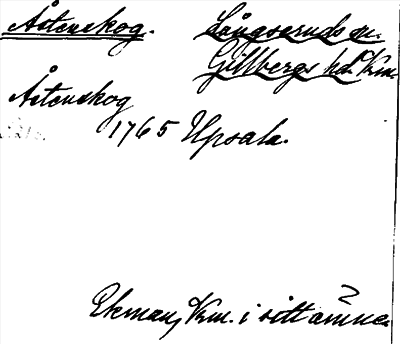 Åstenskog. Långseruds sn.
Gillbergs hd. Km.
Åstenskog
1765 Upsala.
Ekman, Vrm. i sitt ämne.